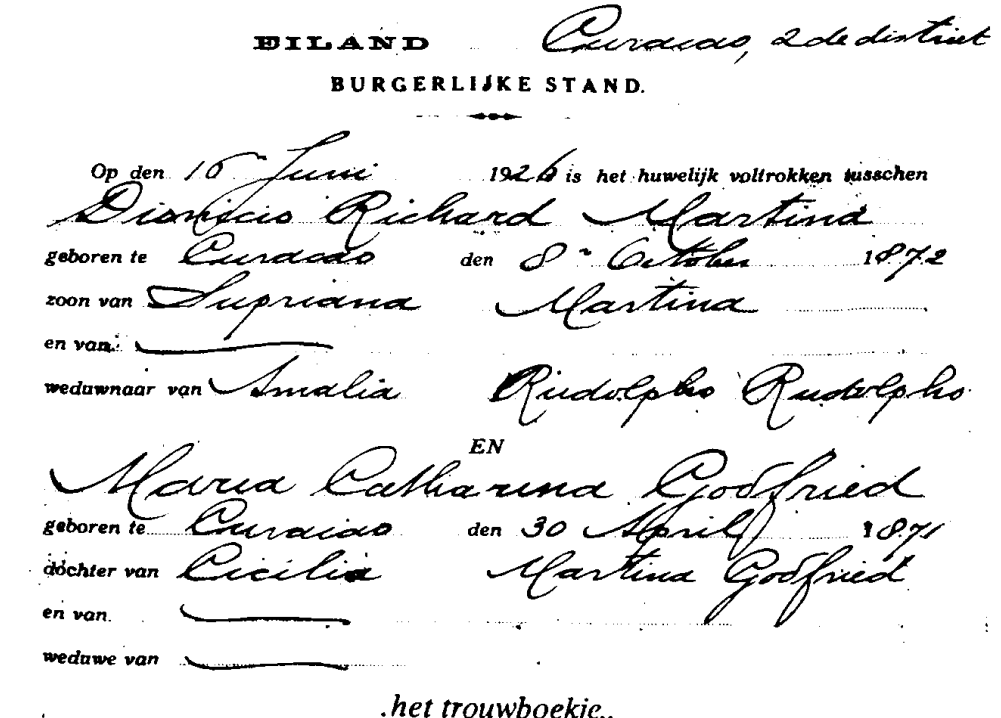 EILAND Curacao, 2de district
BURGERLIJKE STAND.
Op den 16 Juni 1926 is het huwelijk voltrokken tusschen
Dionicio Richard Martina
geboren te Curacao den 8n October 1872
zoon van Supriana Martina
en van
weduwnaar van Amalia Rudolpho Rudolpho
EN
Maria Catharina Godfried
geboren te Curacao den 30 April 1871
dochter van Cicilia Martina Godfried
en van
weduwe van
het trouwboekje